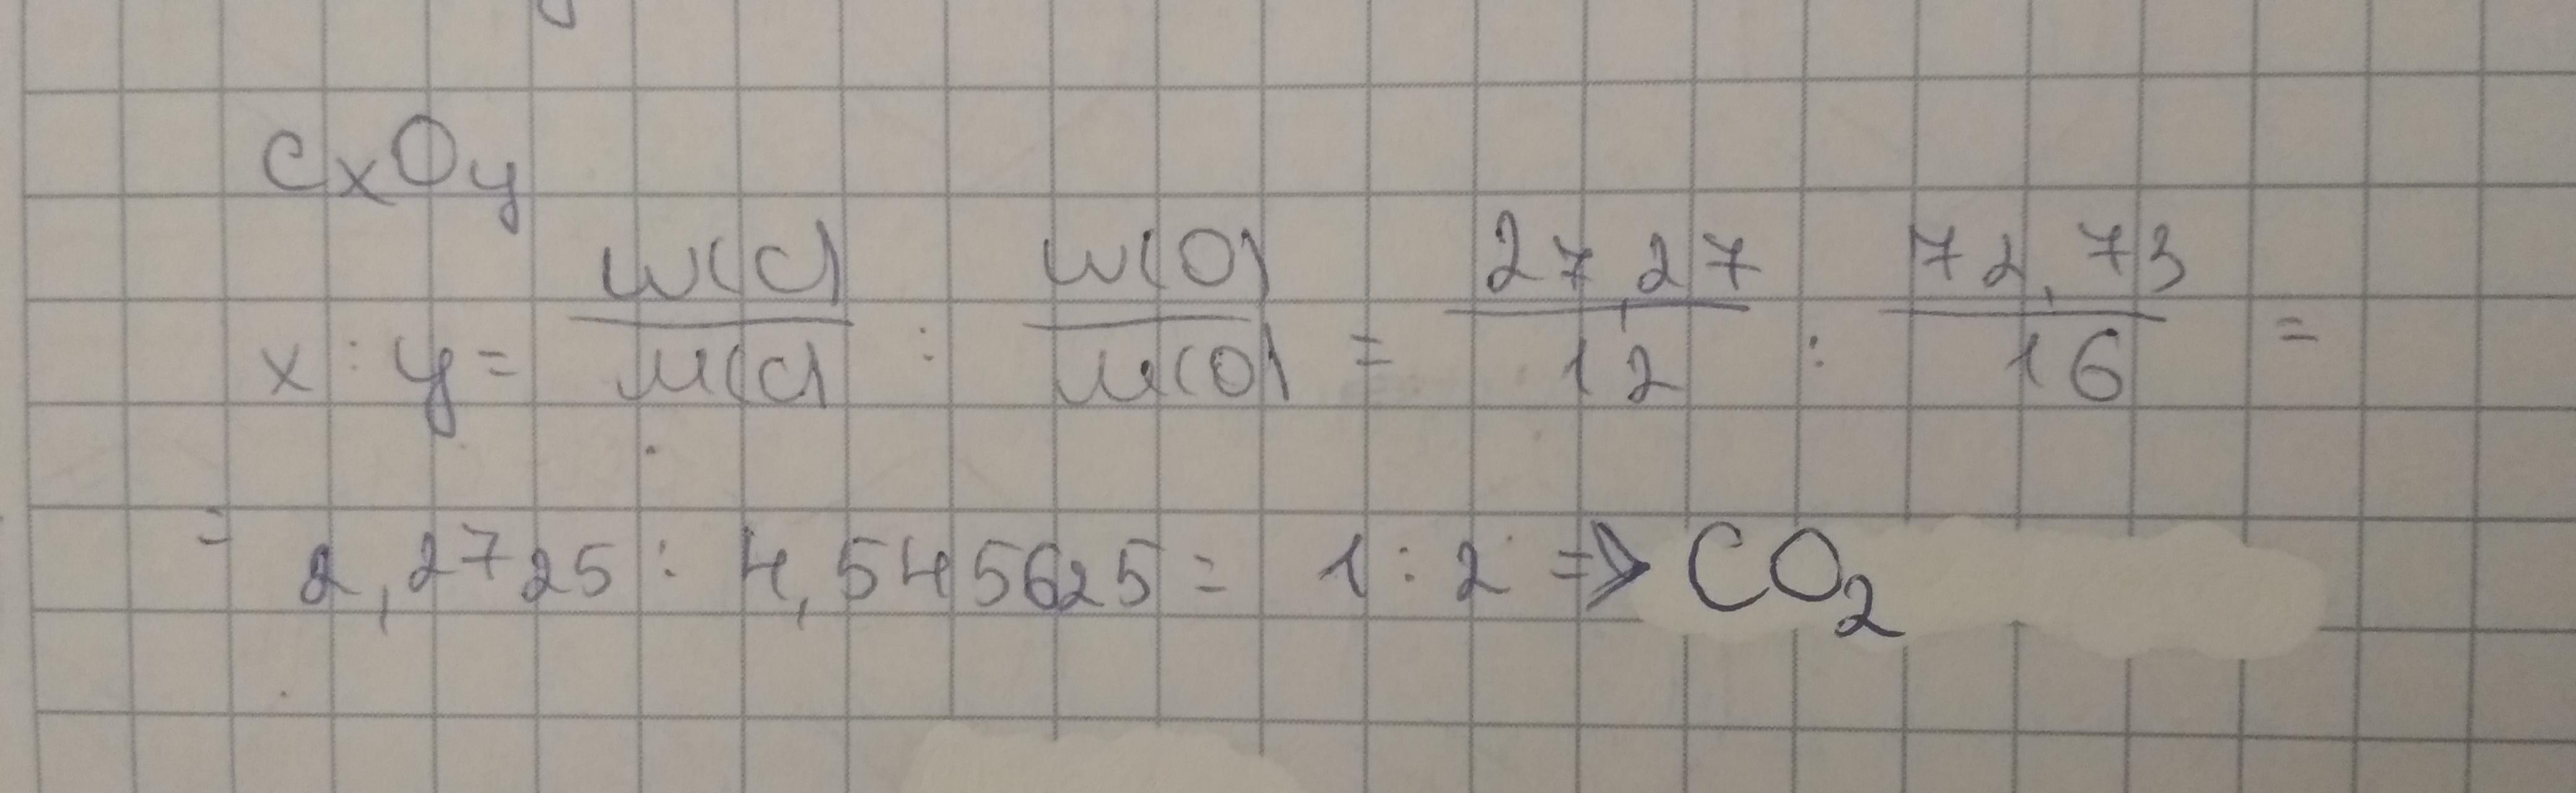 CxOy
x : y = w(C)/M(C) : w(O)/M(O) = 27,27/12 : 72,73/16 =
= 2,2725 : 4,545625 = 1 : 2 => CO2